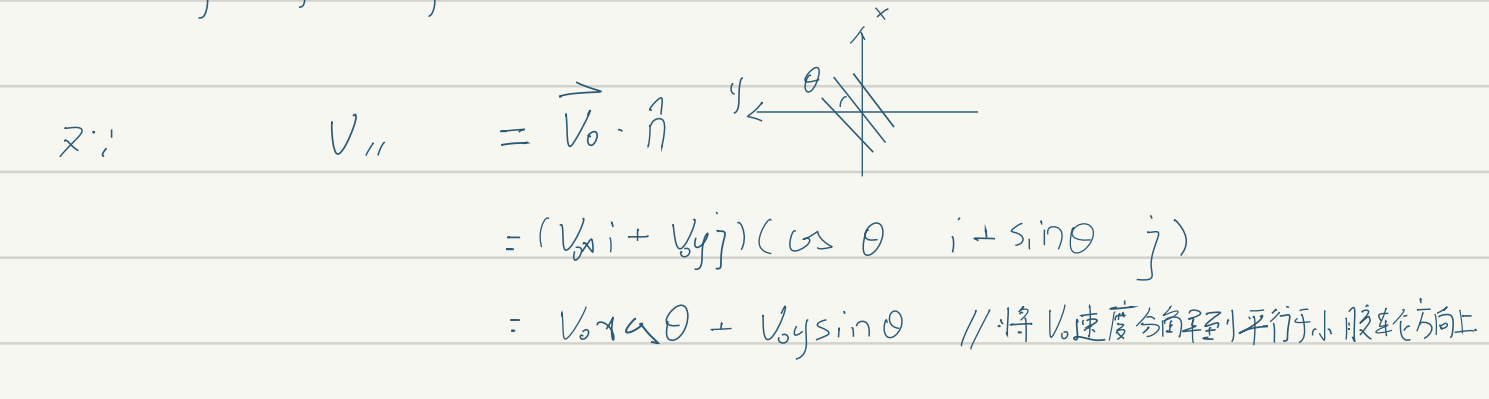 x
θ
y
又∵ V// = V₀ · n̂
= (V₀x i + V₀y j)(cos θ i + sinθ j)
= V₀x cosθ + V₀y sinθ //将 V₀速度分解到平行于小胶轮方向上